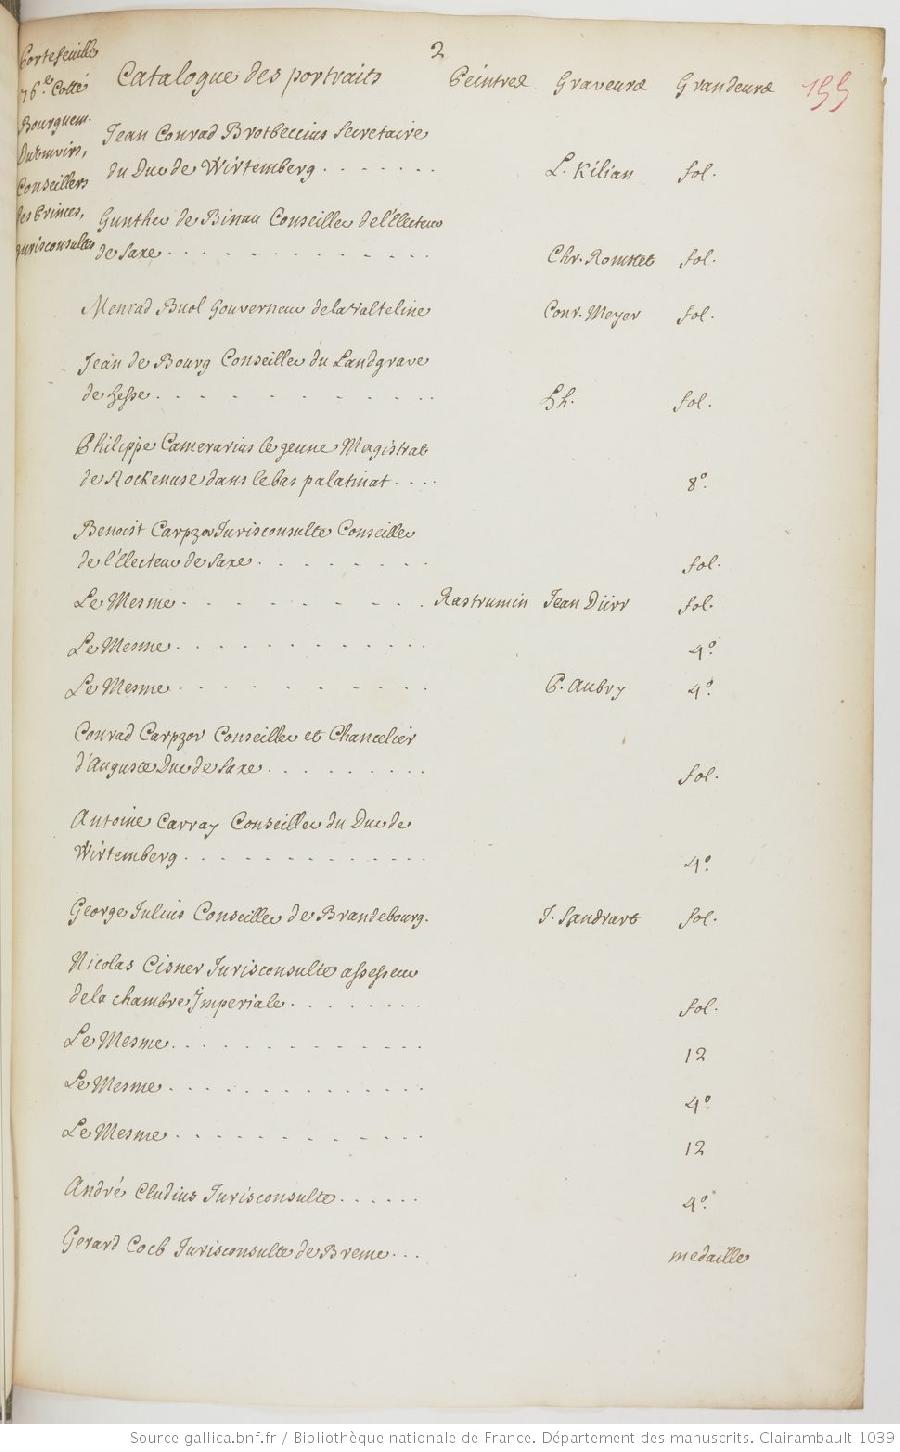 2
Portefeuille
76e Cotté
Bourguem.
Duumvirs,
Conseillers
des Princes,
Jurisconsultes
Catalogue des portraits Peintres Graveurs Grandeurs 155
Jean Conrad Brotbeccius Secretaire
du Duc de Wirtemberg . . . . . . . L. Kilian fol.
Gunther de Binau Conseiller de l'Electeur
de Saxe . . . . . . . . . . . . Chr. Romstet fol.
Menrad Buol Gouverneur de la Valteline Conr. Meyer fol.
Jean de Bourg Conseiller du Landgrave
de Hesse . . . . . . . . . . . . Hh. fol.
Philippe Camerarius le jeune Magistrat
de dans le bas palatinat . . . . 8o.
Benoist Carpzov Jurisconsulte Conseiller
de l'Electeur de Saxe . . . . . . . . fol.
Le Mesme . . . . . . . . . . Rastrumin Jean Dürr fol.
Le Mesme . . . . . . . . . . . . 4o
Le Mesme . . . . . . . . . . P. Aubry 4o.
Conrad Carpzov Conseiller et Chancelier
d'Auguste Duc de Saxe . . . . . . . . fol.
Antoine Carray Conseiller du Duc de
Wirtemberg . . . . . . . . . . . . 4o.
George Julius Conseiller de Brandebourg. J. Sandrart fol.
Nicolas Cisner Jurisconsulte assesseur
de la chambre Imperiale . . . . . . . . fol.
Le Mesme . . . . . . . . . . . . 12
Le Mesme . . . . . . . . . . . . 4o.
Le Mesme . . . . . . . . . . . . 12
André Cludius Jurisconsulte . . . . . . 4o.
Gerard Coch Jurisconsulte de Breme . . . medaille
Source gallica.bnf.fr / Bibliothèque nationale de France. Département des manuscrits. Clairambault 1039